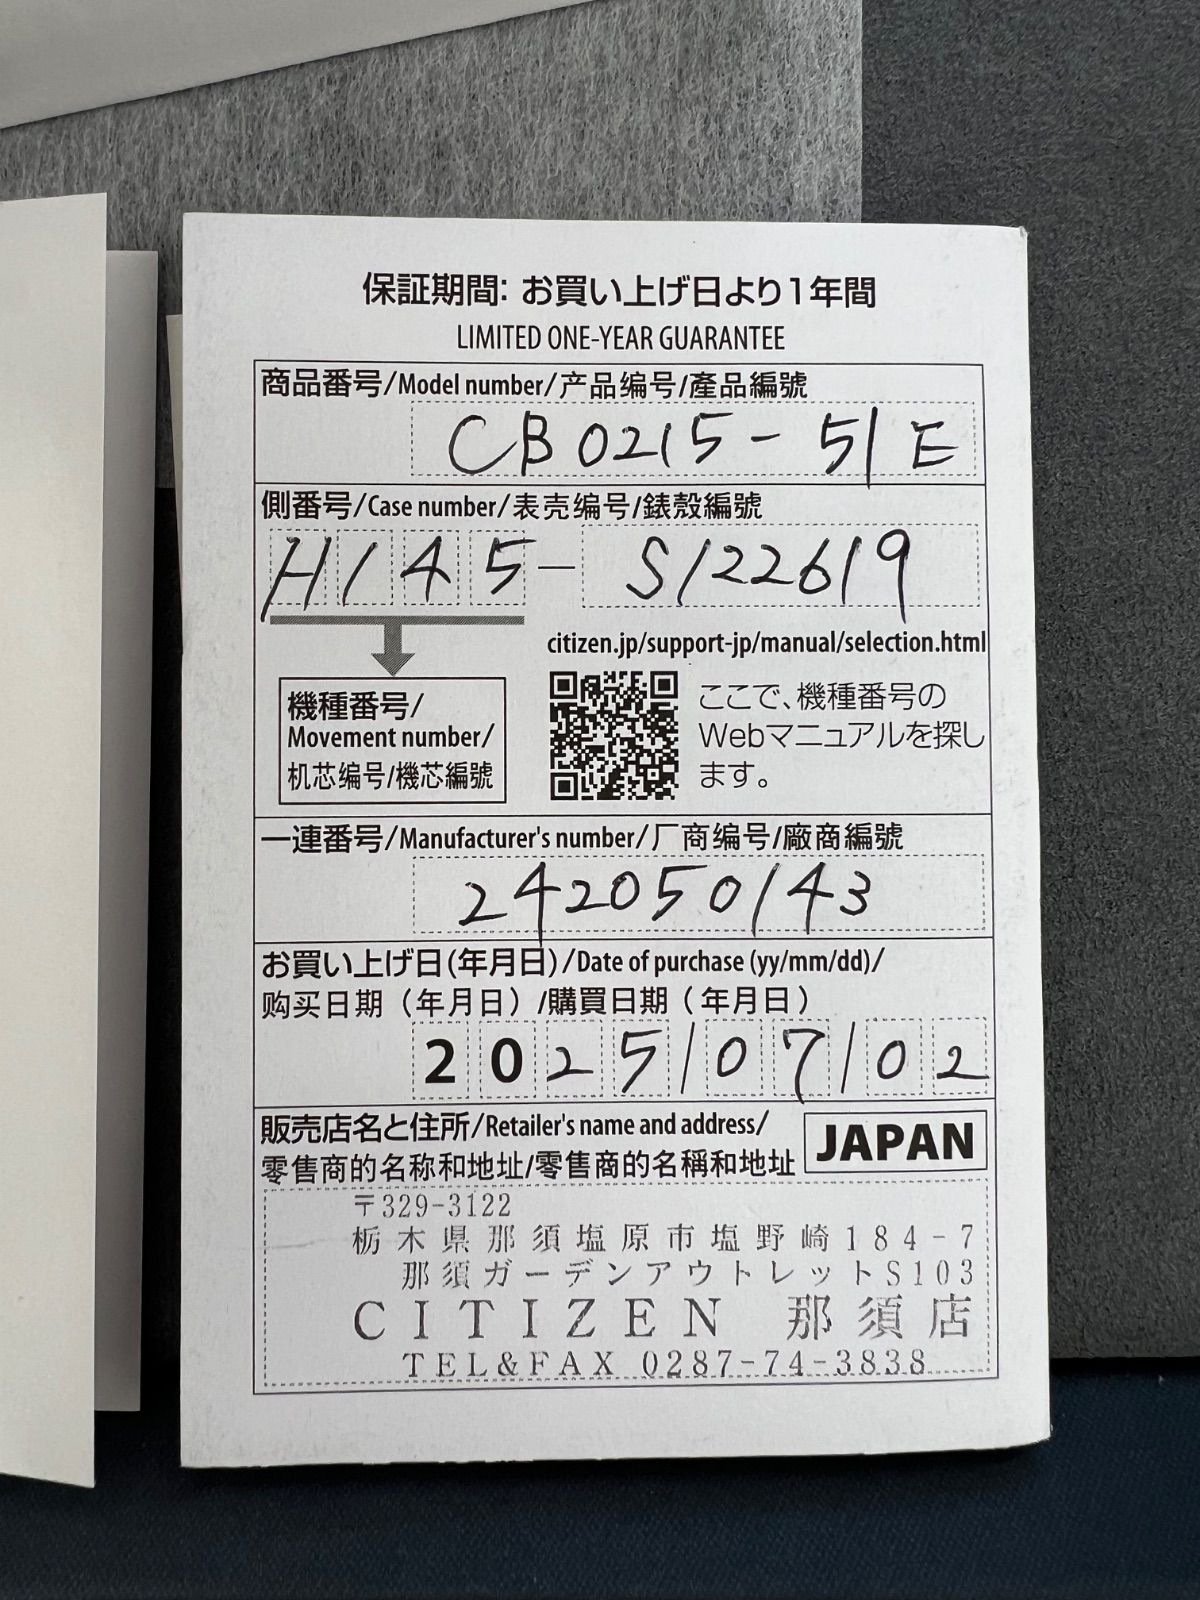 保証期間: お買い上げ日より1年間
LIMITED ONE-YEAR GUARANTEE
商品番号/Model number/产品编号/產品編號
CB0215-51E
側番号/Case number/表壳编号/錶殼編號
H145-S122619
citizen.jp/support-jp/manual/selection.html
機種番号/
Movement number/
机芯编号/機芯編號
ここで、機種番号の
Webマニュアルを探し
ます。
一連番号/Manufacturer's number/厂商编号/廠商編號
242050143
お買い上げ日(年月日)/Date of purchase (yy/mm/dd)/
购买日期（年月日）/購買日期（年月日）
2025/07/02
販売店名と住所/Retailer's name and address/
零售商的名称和地址/零售商的名稱和地址
JAPAN
〒329-3122
栃木県那須塩原市塩野崎184-7
那須ガーデンアウトレットS103
CITIZEN 那須店
TEL&FAX 0287-74-3838